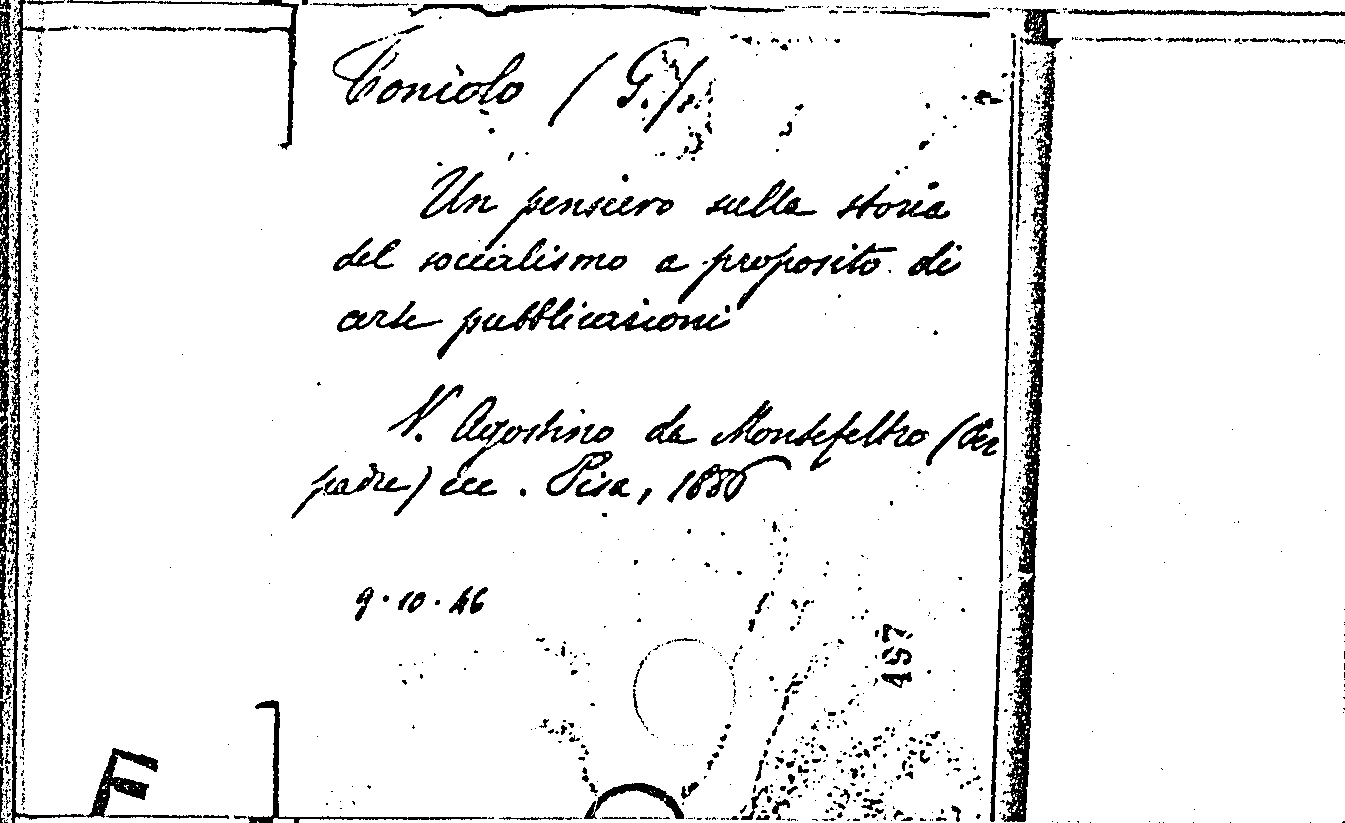 Toniolo (G.).
Un pensiero sulla storia
del socialismo a proposito di
arte pubblicazioni
V. Agostino da Montefeltro (Del
padre) ecc. Pisa, 188
9.10.46
497
F